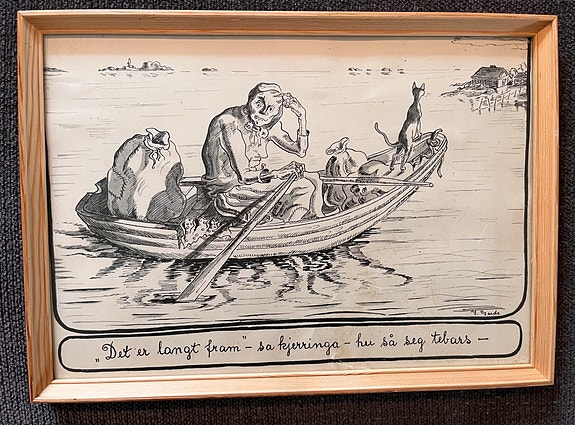 „Det er langt fram" – sa kjerringa – hu så seg tebars –